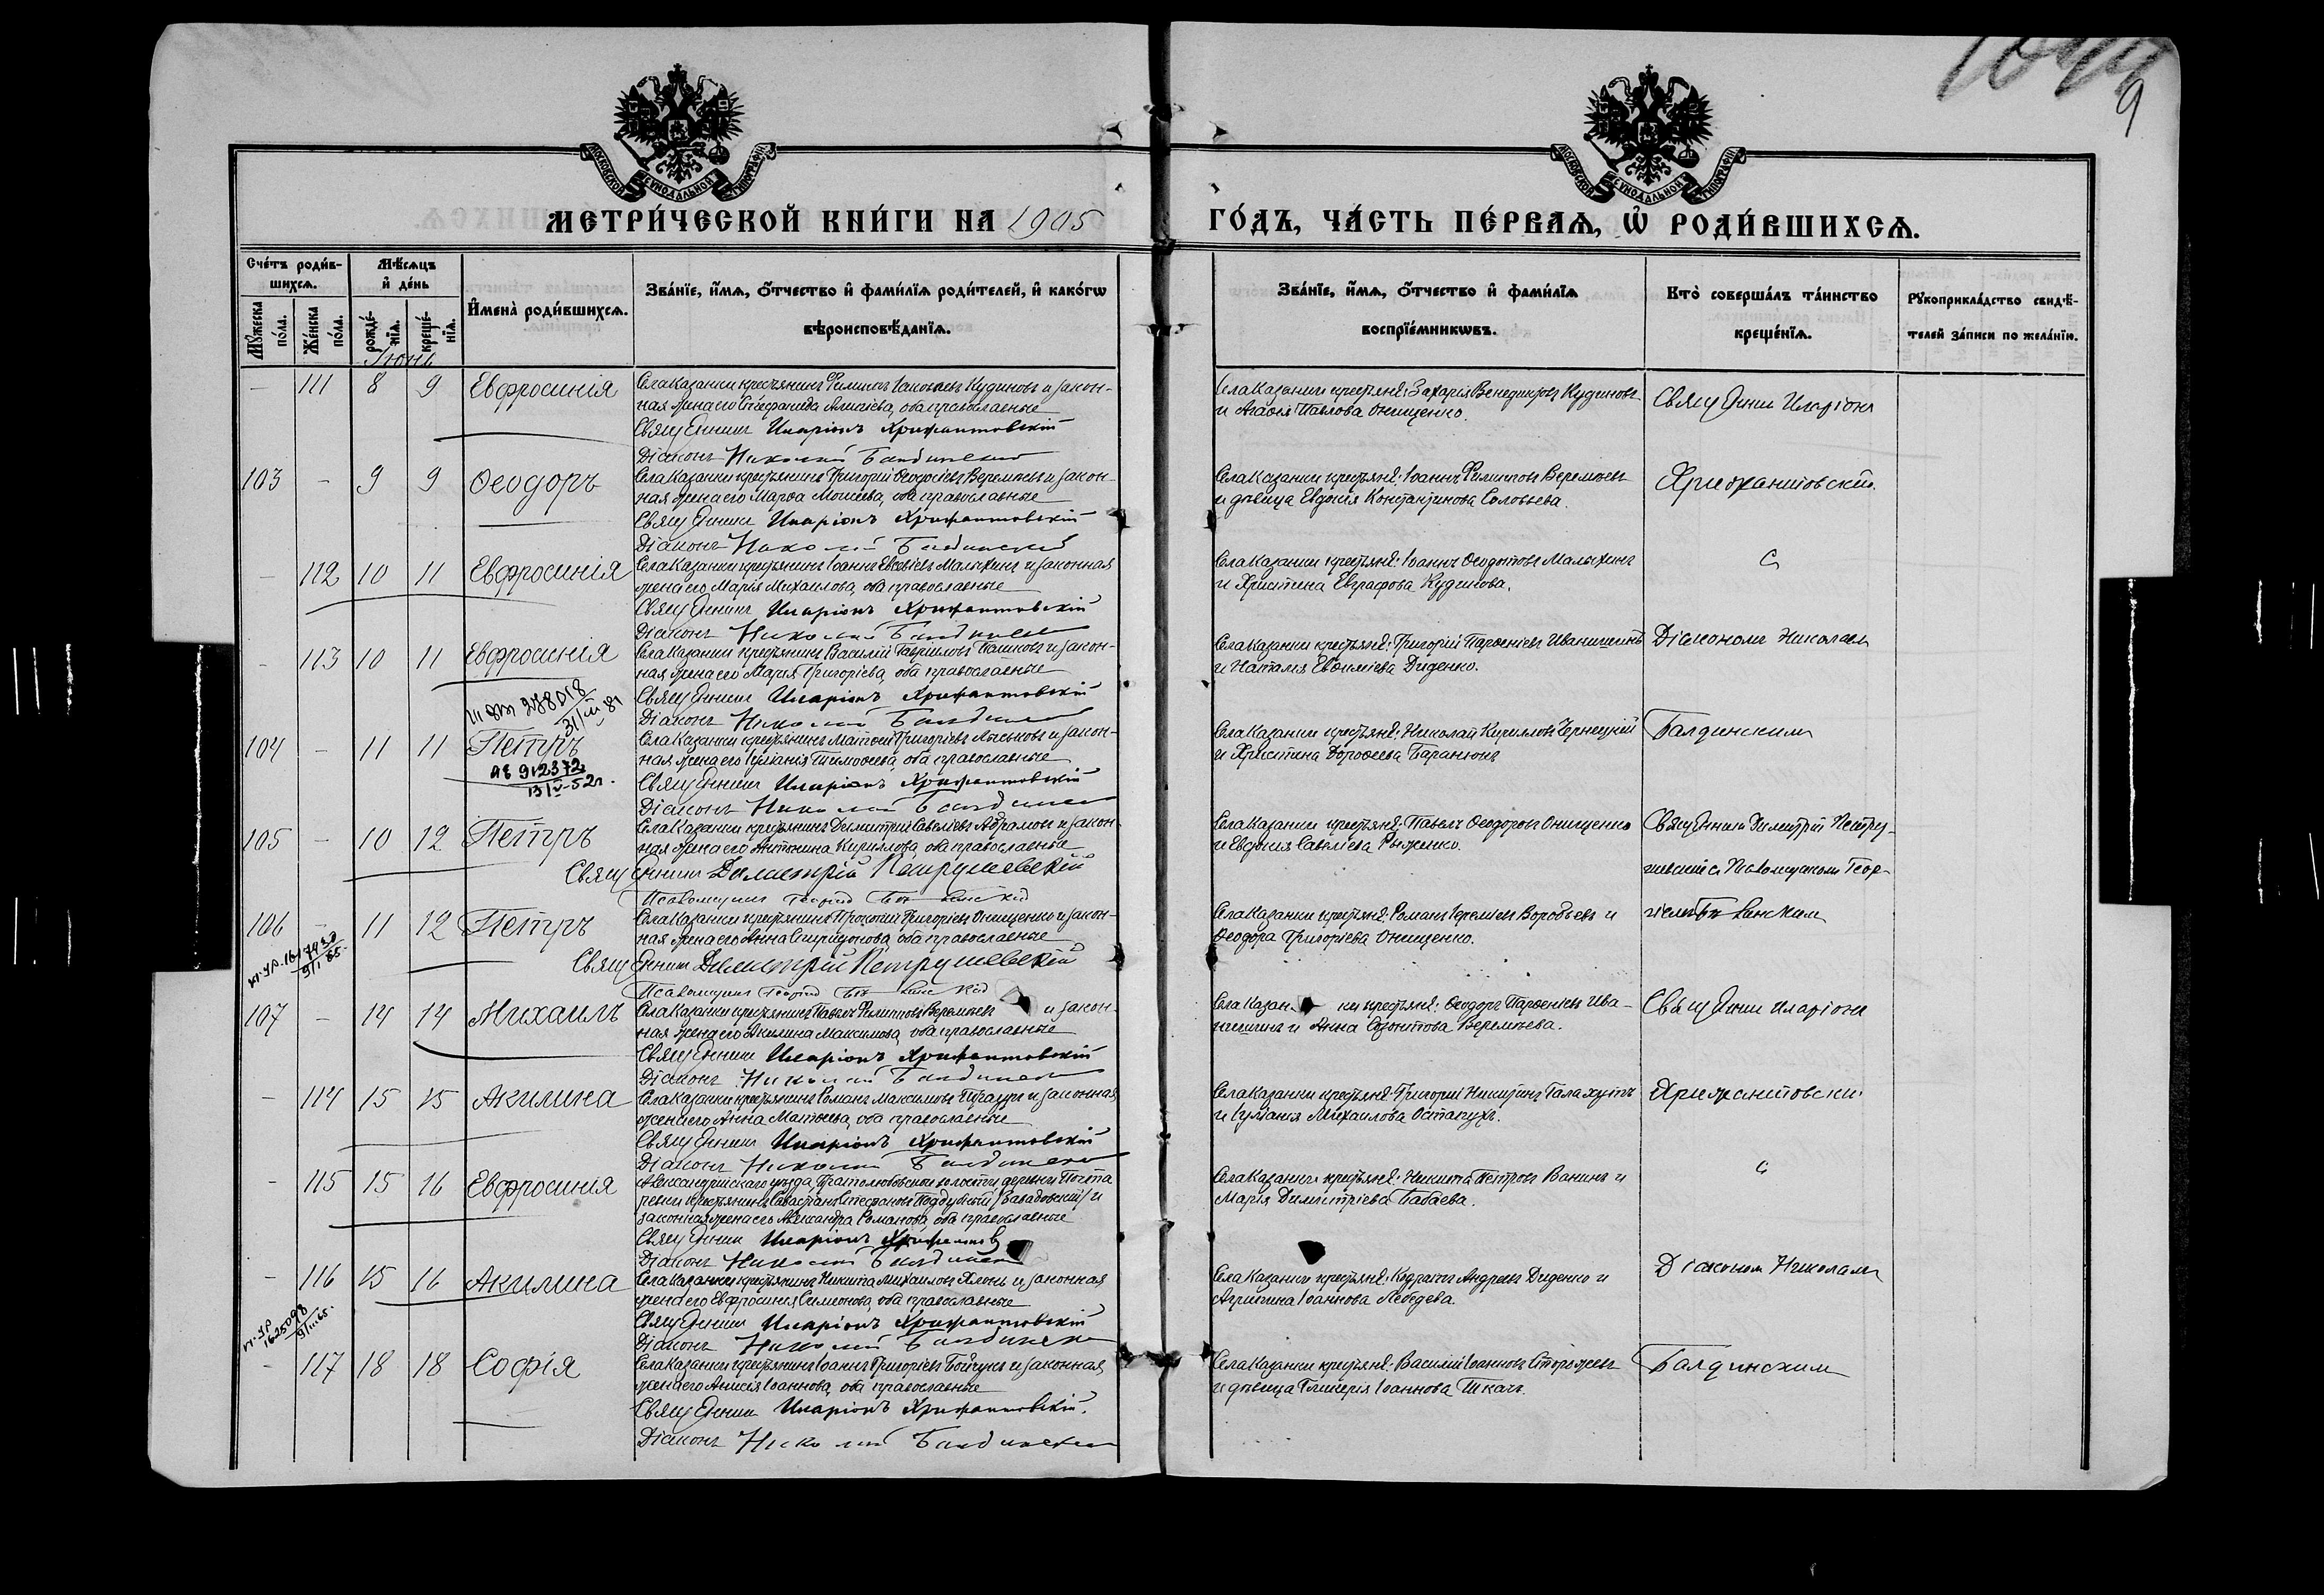 9
МОСКОВСКОЙ СѴНОДАЛЬНОЙ ТИПОГРАФІИ
МОСКОВСКОЙ СѴНОДАЛЬНОЙ ТИПОГРАФІИ
МЕТРИ́ЧЕСКОЙ КНИ́ГИ НА 1905
ГО́ДЪ, ЧА́СТЬ ПЕ́РВАѦ, Ѽ РОДИ́ВШИХСѦ.
Сче́тъ роди́в-
шихсѧ.
Мꙋ́жеска по́ла.
Же́нска по́ла.
Мѣ́сѧцъ
и҆ де́нь
рожде́-
нїѧ.
креще́-
нїѧ.
И҆мена̀ роди́вшихсѧ.
Зва́нїе, и҆́мѧ, ѻ҆́тчество и҆ фами́лїѧ роди́телей, и҆ како́гѡ
вѣроисповѣ́данїѧ.
Зва́нїе, и҆́мѧ, ѻ҆́тчество и҆ фами́лїѧ
воспрїе́мникѡвъ.
Кто̀ соверша́лъ та́инство
креще́нїѧ.
Рꙋкоприкла́дство свидѣ́-
телей за́писи по жела́нїю.
Іюнь
— 111 8 9 Евфросинія
Села Казанки крестьянинъ Филиппъ Іаковлевъ Кудиновъ и закон-
ная жена его Стефанида Алексіева, оба православные
Священникъ Иларіонъ Хрисанфовскій
Діаконъ Николай Балдинскій
Села Казанки крестьяне: Захарія Венедиктовъ Кудиновъ
и Агафія Павлова Онищенко.
Священник Иларіон
103 — 9 9 Ѳеодоръ
Села Казанки крестьянинъ Григорій Ѳеодосіевъ Веремьевъ и закон-
ная жена его Марѳа Моисеева, оба православные
Священникъ Иларіонъ Хрисанфовскій
Діаконъ Николай Балдинскій
Села Казанки крестьяне: Іоаннъ Филипповъ Веремьевъ
и дѣвица Евдокія Константинова Соловьева.
Хрисанфовскій.
— 112 10 11 Евфросинія
Села Казанки крестьянинъ Іоаннъ Евсевіевъ Малыхинъ и законная
жена его Марія Михаилова, оба православные
Священникъ Иларіонъ Хрисанфовскій
Діаконъ Николай Балдинскій
Села Казанки крестьяне: Іоаннъ Ѳеодотовъ Малыхинъ
и Христина Евграфова Кудинова.
с
— 113 10 11 Евфросинія
Села Казанки крестьянинъ Василій Гавриловъ Пашковъ и закон-
ная жена его Марія Григоріева, оба православные
Священникъ Иларіонъ Хрисанфовскій
Діаконъ Николай Балдинскій
Села Казанки крестьяне: Григорій Парѳеніевъ Иванишинъ
и Наталія Евѳиміева Диденко.
Діакономъ Николаем
31/III 81
104 — 11 11 Петръ
АЕ 912372
13/V-52г.
Села Казанки крестьянинъ Матѳей Григоріевъ Лыськовъ и закон-
ная жена его Іуліанія Тимоѳеева, оба православные
Священникъ Иларіонъ Хрисанфовскій
Діаконъ Николай Балдинскій
Села Казанки крестьяне: Николай Кирилловъ Чернецкій
и Христина Дороѳеева Баранюкъ
Балдинским
105 — 10 12 Петръ
Села Казанки крестьянинъ Димитрій Савеліевъ Абрамовъ и закон-
ная жена его Антонина Кириллова, оба православные
Священникъ Димитрій Петрушевскій
Псаломщикъ Георгій
Села Казанки крестьяне: Павелъ Ѳеодоровъ Онищенко
и Евдокія Савеліева Рыженко.
Священник Димитрій Петру-
шевскій с Псаломщиком Геор-
106 — 11 12 Петръ
9/I 65.
Села Казанки крестьянинъ Прокопій Григоріевъ Онищенко и закон-
ная жена его Анна Спиридонова, оба православные
Священникъ Димитрій Петрушевскій
Псаломщикъ Георгій
Села Казанки крестьяне: Романъ Іереміевъ Воробьевъ и
Ѳеодора Григоріева Онищенко.
гіем
107 — 14 14 Михаилъ
Села Казанки крестьянинъ Павелъ Филипповъ Веремьевъ и закон-
ная жена его Акилина Максимова, оба православные
Священникъ Иларіонъ Хрисанфовскій
Діаконъ Николай Балдинскій
Села Казанки крестьяне: Ѳеодоръ Парѳеніевъ Ива-
нишинъ и Анна Созонтова Веремьева.
Священник Иларіон
— 114 15 15 Акилина
Села Казанки крестьянинъ Романъ Максимовъ и законная
жена его Анна Матѳеева, оба православные
Священникъ Иларіонъ Хрисанфовскій
Діаконъ Николай Балдинскій
Села Казанки крестьяне: Григорій Никитинъ Галахутъ
и Іуліанія Михаилова Остапухъ.
Хрисанфовскій
— 115 15 16 Евфросинія
Александрійскаго уѣзда, Братолюбовской волости, деревни
крестьянинъ Севастіанъ Стефановъ Поддубный и
законная жена его Александра Романова, оба православные
Священник Иларіонъ
Діаконъ Николай Балдинскій
Села Казанки крестьяне: Никита Петровъ Ванинъ и
Марія Димитріева Бабаева.
с
— 116 15 16 Акилина
1625098
9/III 65.
Села Казанки крестьянинъ Никита Михаиловъ и законная
жена его Евфросинія Симеонова, оба православные
Священникъ Иларіонъ Хрисанфовскій
Діаконъ Николай Балдинскій
Села Казанки крестьяне: Кодратъ Андреевъ Диденко и
Агрипина Іоаннова Лебедева.
Діаконом Николаем
— 117 18 18 Софія
Села Казанки крестьянинъ Іоаннъ Григоріевъ Бойчукъ и законная
жена его Анисія Іоаннова, оба православные
Священник Иларіонъ Хрисанфовскій.
Діаконъ Николай Балдинскій
Села Казанки крестьяне: Василій Іоанновъ Сторожевъ
и дѣвица Гликерія Іоаннова Ткачъ.
Балдинским